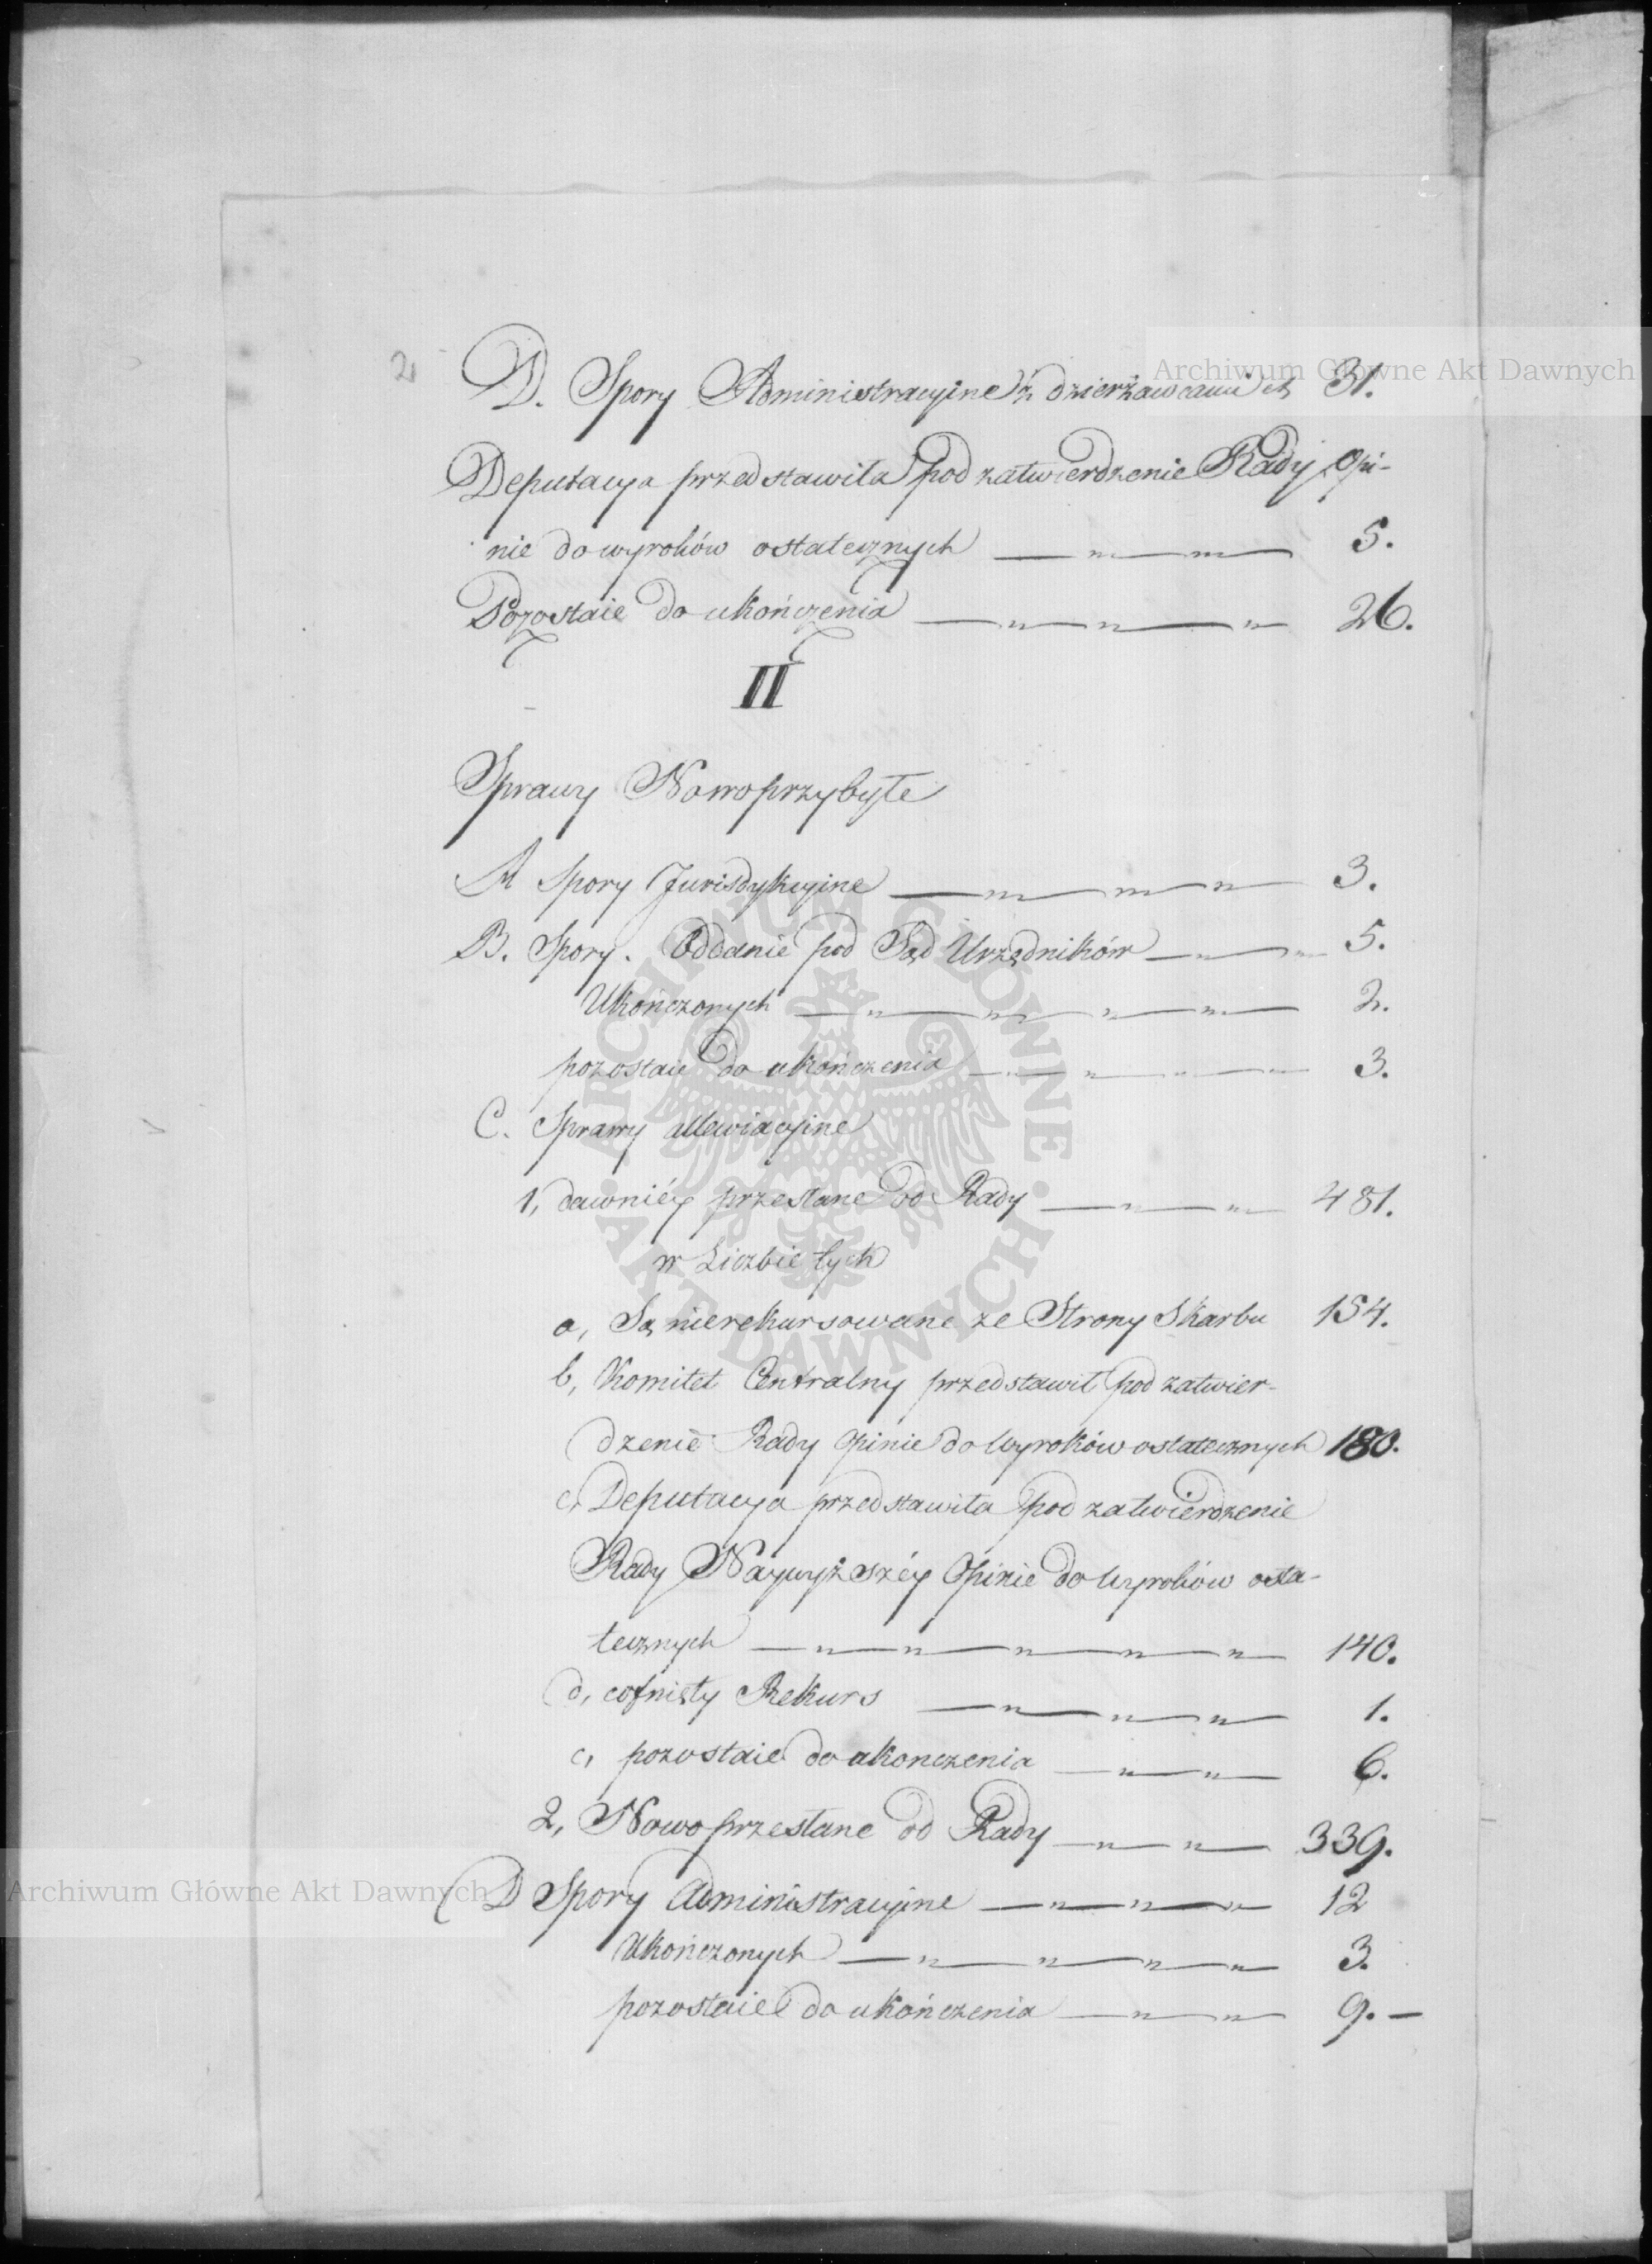 2
D. Spory Administracyine z dzierżawcami etc 31.
Deputacya przedstawiła pod zatwierdzenie Rady opi-
nie do wyroków ostatecznych — " — " — 5.
Pozostaie do ukończenia — " — " — " 26.
II
Sprawy Nowoprzybyłe
A Spory Jurisdykcyine — " — " — " — 3.
B. Spory. Oddanie pod Sąd Urzędników — " — " — 5.
Ukończonych — " — " — " — " — 2.
pozostaie do ukończenia — " — " — " — 3.
C. Sprawy allewiacyine
1, dawniéy przesłane od Rady — " — " — 481.
w Liczbie tych
a, Są nierekursowane ze Strony Skarbu 154.
b, Komitet Centralny przedstawił pod zatwier-
dzenie Rady Opinie do Wyroków ostatecznych 180.
c, Deputacya przedstawiła pod zatwierdzenie
Rady Naywyższéy Opinie do Wyroków osta-
tecznych — " — " — " — " — " — 140.
d, cofnięty Rekurs — " — " — " — 1.
e, pozostaie do ukonczenia — " — " — 6.
2, Nowo przesłane od Rady — " — " — 339.
D Spory Administracyine — " — " — " — 12
Ukończonych — " — " — " — " — 3.
pozostaie do ukończenia — " — " — 9. —
Archiwum Główne Akt Dawnych
Archiwum Główne Akt Dawnych
ARCHIWUM GŁÓWNE · AKT DAWNYCH ·